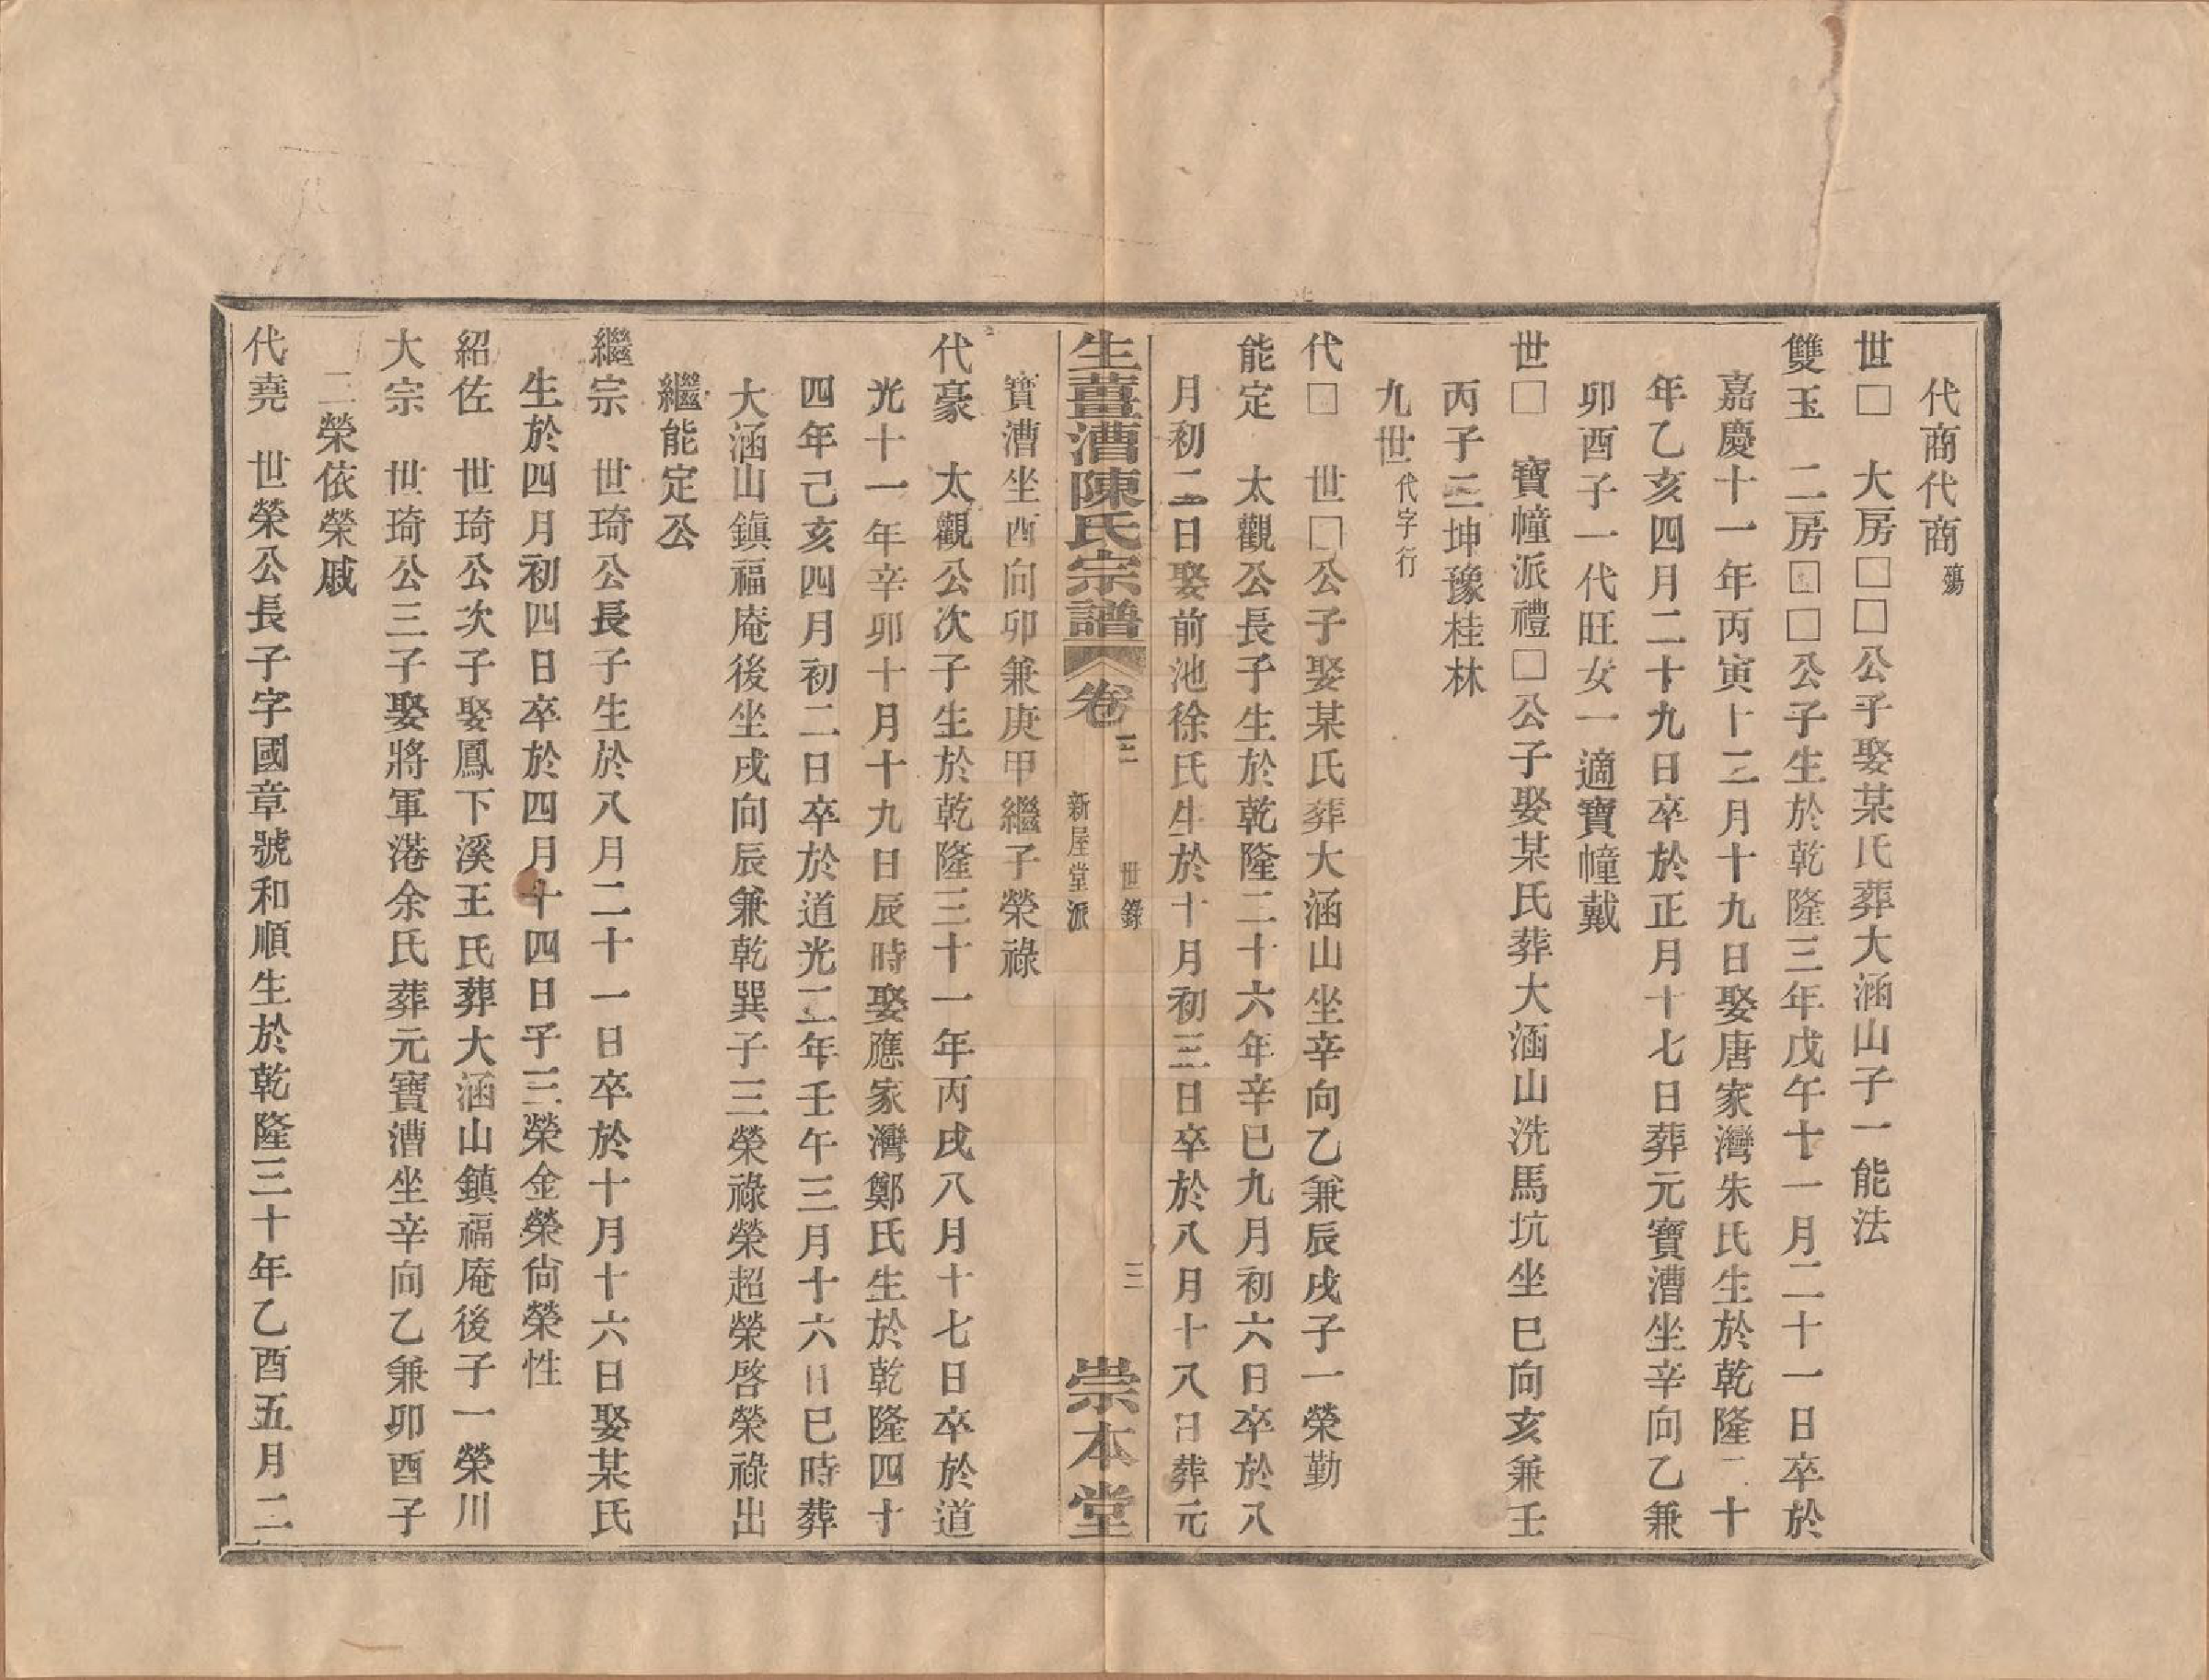 代商代商殤
世□　大房□□公子娶某氏葬大涵山子一能法
雙玉　二房□□公子生於乾隆三年戊午十一月二十一日卒於
嘉慶十一年丙寅十二月十九日娶唐家灣朱氏生於乾隆二十
年乙亥四月二十九日卒於正月十七日葬元寶漕坐辛向乙兼
卯酉子一代旺女一適寶幢戴
世□　寶幢派禮□公子娶某氏葬大涵山洗馬坑坐巳向亥兼壬
丙子三坤豫桂林
九世代字行
代□　世□公子娶某氏葬大涵山坐辛向乙兼辰戌子一榮勤
能定　太觀公長子生於乾隆二十六年辛巳九月初六日卒於八
月初二日娶前池徐氏生於十月初三日卒於八月十八日葬元
生薑漕陳氏宗譜　卷三　世錄　新屋堂派　三　崇本堂
寶漕坐酉向卯兼庚甲繼子榮祿
代豪　太觀公次子生於乾隆三十一年丙戌八月十七日卒於道
光十一年辛卯十月十九日辰時娶應家灣鄭氏生於乾隆四十
四年己亥四月初二日卒於道光二年壬午三月十六日巳時葬
大涵山鎮福庵後坐戌向辰兼乾巽子三榮祿榮超榮啓榮祿出
繼能定公
繼宗　世琦公長子生於八月二十一日卒於十月十六日娶某氏
生於四月初四日卒於四月十四日子三榮金榮尙榮性
紹佐　世琦公次子娶鳳下溪王氏葬大涵山鎮福庵後子一榮川
大宗　世琦公三子娶將軍港余氏葬元寶漕坐辛向乙兼卯酉子
二榮依榮戚
代堯　世榮公長子字國章號和順生於乾隆三十年乙酉五月二